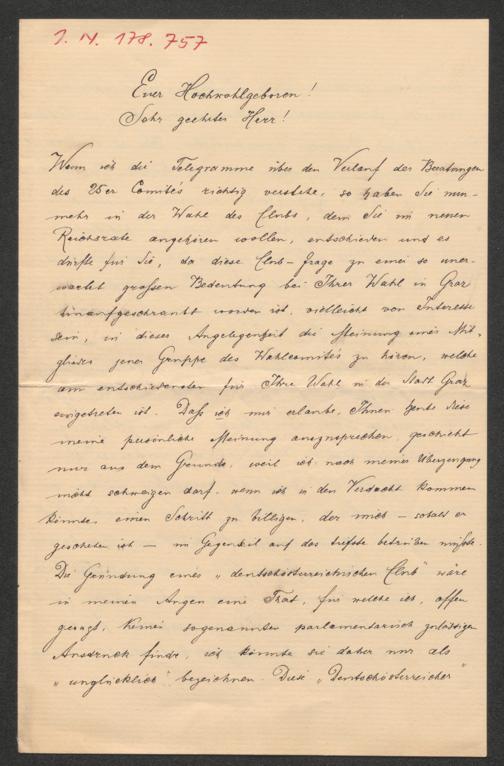 I. N. 178.757
Euer Hochwohlgeboren!
Sehr geehrter Herr!
Wenn ich die Telegramme über den Verlauf der Beratungen
des 25er Comités richtig verstehe, so haben Sie nun-
mehr in der Wahl des Clubs, dem Sie im neuen
Reichsrate angehören wollen, entschieden und es
dürfte für Sie, da diese Club-frage zu einer so uner-
wartet großen Bedeutung bei Ihrer Wahl in Graz
hinaufgeschraubt worden ist, vielleicht von Interesse
sein, in dieser Angelegenheit die Meinung eines Mit-
gliedes jener Gruppe des Wahlcomités zu hören, welche
am entschiedensten für Ihre Wahl in der Stadt Graz
eingetreten ist. Daß ich mir erlaube, Ihnen heute diese
meine persönliche Meinung auszusprechen, geschieht
nur aus dem Grunde, weil ich nach meiner Überzeugung
nicht schweigen darf, wenn ich in den Verdacht kommen
könnte, einen Schritt zu billigen, der mich – sobald er
geschehen ist – im Gegenteil auf das tiefste betrüben müßte.
Die Gründung eines „deutschösterreichischen Club" wäre
in meinen Augen eine That, für welche ich, offen
gesagt, keinen sogenannten parlamentarisch zulässigen
Ausdruck finde, ich könnte sie daher nur als
„unglücklich" bezeichnen. Diese „Deutschösterreicher"